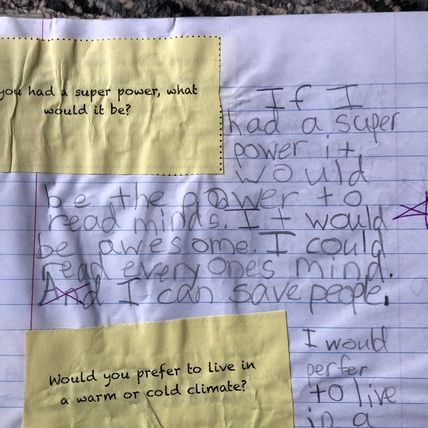 you had a super power, what
would it be?
If I
had a super
power it
would
be the power to
read minds. It would
be awesome. I could
read everyones mind.
And I can save people.
Would you prefer to live in
a warm or cold climate?
I would
perfer
to live
in a